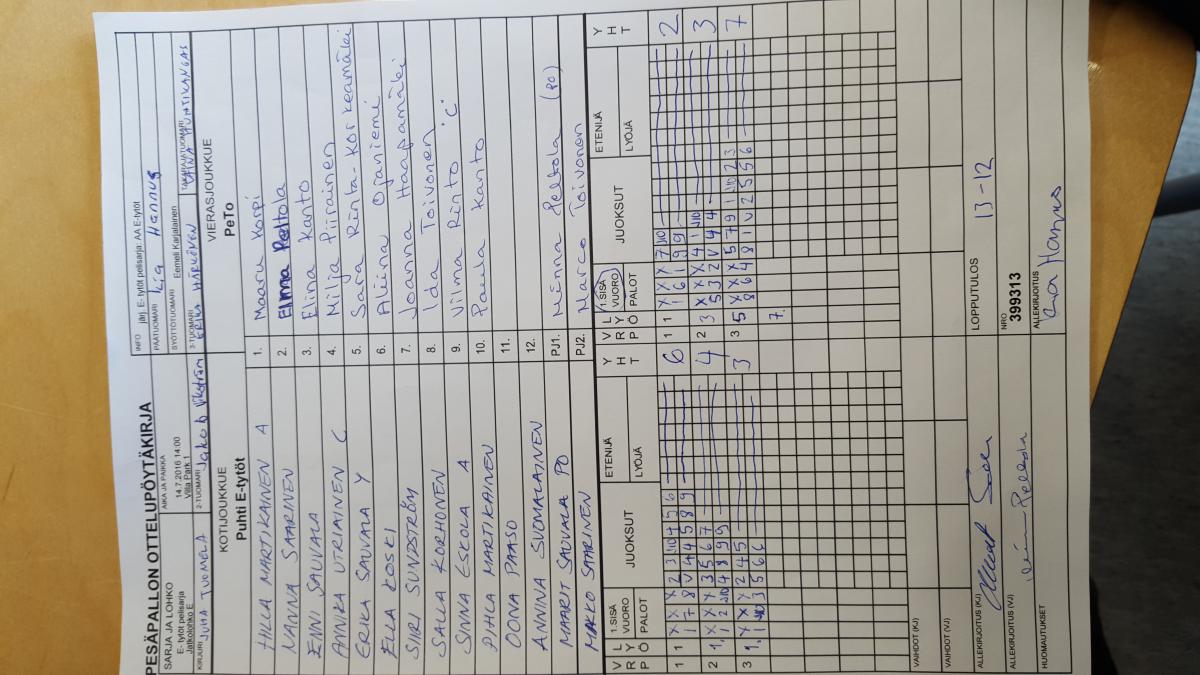 PESÄPALLON OTTELUPÖYTÄKIRJA
SARJA JA LOHKO
E- tytöt pelisarja
Jatkolohko E
AIKA JA PAIKKA
14.7.2016 14:00
Villa Park 1
INFO järj. E- tytöt pelisarja: AA E-tytöt
PÄÄTUOMARI Lia Hannus
SYÖTTÖTUOMARI Eemeli Karjalainen
KIRJURI JUHA TUOMELA
2-TUOMARI Jakob Wikström
3-TUOMARI ERIKA HARKÖNEN
TAKARAJATUOMARI VÄINÄ HUHTIKANGAS
KOTIJOUKKUE
Puhti E-tytöt
VIERASJOUKKUE
PeTo
HILLA MARTIKAINEN A 1. Maaru Korpi
NANNA SAARINEN 2. Elma Peltola
ENNI SAUVALA 3. Elina Kanto
ANNIKA UTRIAINEN C 4. Milja Piirainen
ERIKA SAUVALA Y 5. Sara Rinta-Korkeamäki
ELLA KOSKI 6. Aliina Ojaniemi
SIIRI SUNDSTRÖM 7. Joanna Haapamäki
SALLA KORHONEN 8. Ida Toivonen
SINNA ESKOLA A 9. Vilma Rinto "C"
PIHLA MARTIKAINEN 10. Paula Kanto
OONA PAASO 11.
ANNINA SUOMALAINEN 12.
MAARIT SAUVALA PO PJ1. Minna Peltola (PO)
MARKO SAARINEN PJ2. Marco Toivonen
V L
R Y
P Ö
1.SISÄ
VUORO
PALOT
JUOKSUT
ETENIJÄ
LYÖJÄ
Y
H
T
V L
R Y
P Ö
1.SISÄ
VUORO
PALOT
JUOKSUT
ETENIJÄ
LYÖJÄ
Y
H
T
1 1 X X X 2 3 J10 4 5 6 6
1 7 8 V 4 4 5 8 9
1 1 X X X 7 J10 2
1 6 1 9 9
2 1. X X X 3 5 6 7 4
1 2 J10 4 8 9 9
2 3 X X X 4 1 J10 3
5 3 2 V 4 4
3 1. X X X 2 4 5 3
1 J10 3 5 6 6
3 5 X X X 5 7 9 1 J10 2 3 7
8 6 4 8 1 V 2 5 5 6
7.
VAIHDOT (KJ)
VAIHDOT (VJ)
ALLEKIRJOITUS (KJ)
LOPPUTULOS 13-12
ALLEKIRJOITUS (VJ) Minna Peltola
NRO
399313
HUOMAUTUKSET
ALLEKIRJOITUS
Lia Hannus